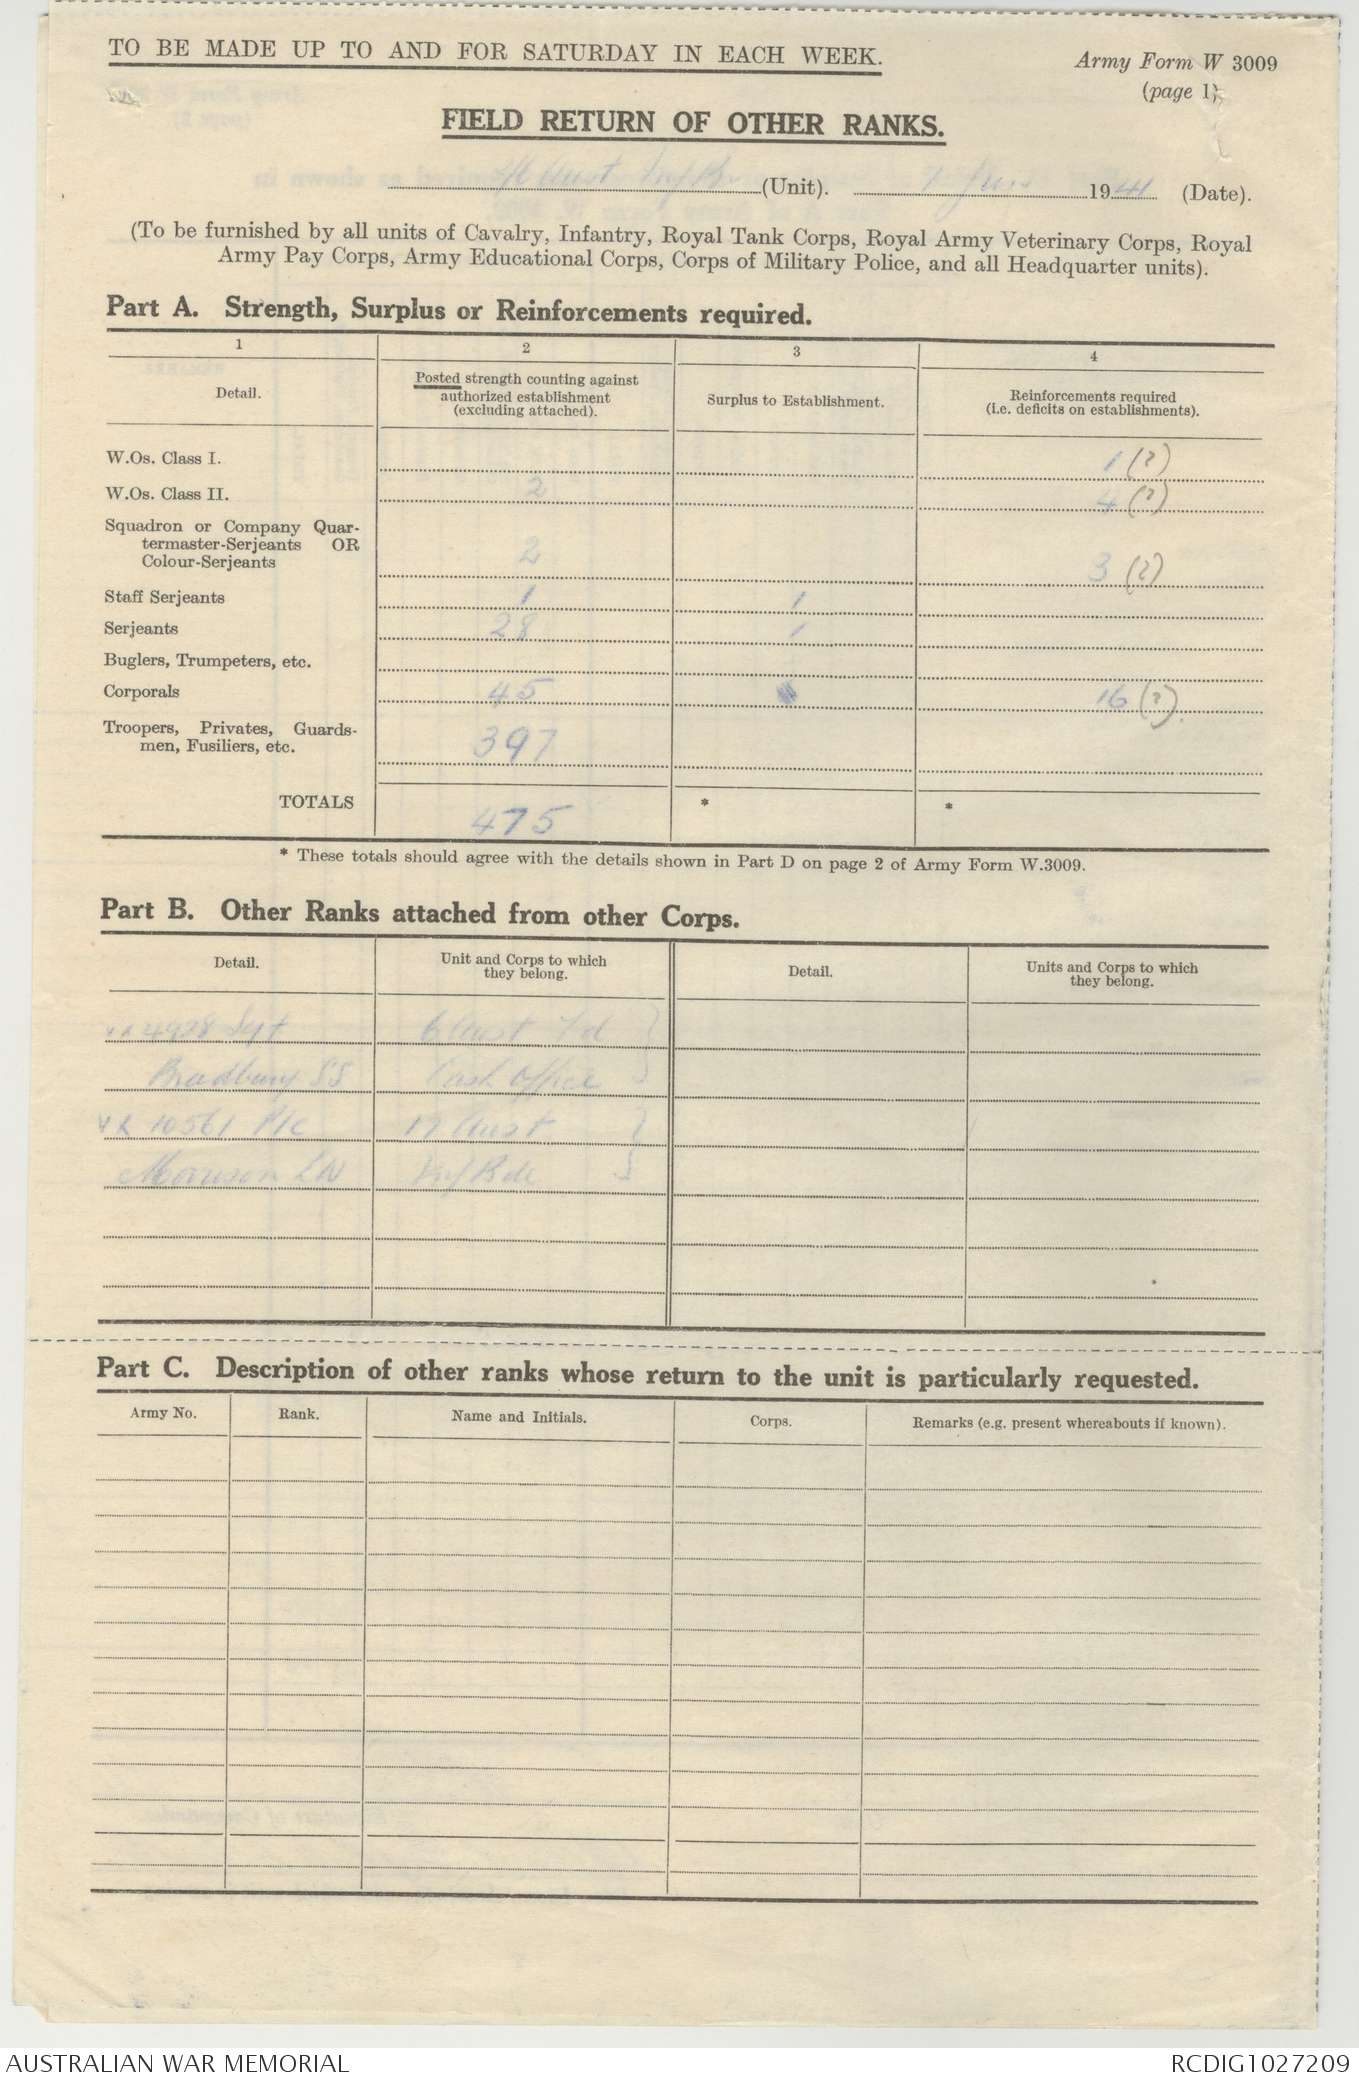 TO BE MADE UP TO AND FOR SATURDAY IN EACH WEEK.
Army Form W 3009
(page 1)
FIELD RETURN OF OTHER RANKS.
Aust Inf Bn (Unit). 7 June 1941 (Date).
(To be furnished by all units of Cavalry, Infantry, Royal Tank Corps, Royal Army Veterinary Corps, Royal
Army Pay Corps, Army Educational Corps, Corps of Military Police, and all Headquarter units).
Part A. Strength, Surplus or Reinforcements required.
1 2 3 4
Detail.
Posted strength counting against
authorized establishment
(excluding attached).
Surplus to Establishment.
Reinforcements required
(i.e. deficits on establishments).
W.Os. Class I. 1 (?)
W.Os. Class II. 2 4 (?)
Squadron or Company Quar-
termaster-Serjeants OR
Colour-Serjeants 2 3 (?)
Staff Serjeants 1 1
Serjeants 28 1
Buglers, Trumpeters, etc.
Corporals 45 16 (?)
Troopers, Privates, Guards-
men, Fusiliers, etc. 397
TOTALS 475 * *
* These totals should agree with the details shown in Part D on page 2 of Army Form W.3009.
Part B. Other Ranks attached from other Corps.
Detail.
Unit and Corps to which
they belong.
Detail.
Units and Corps to which
they belong.
4928 Sgt 6 Aust Fd }
Bradbury SS Cash Office
VX 10561 Pte 17 Aust }
Morrison LN Inf Bde
Part C. Description of other ranks whose return to the unit is particularly requested.
Army No. Rank. Name and Initials. Corps. Remarks (e.g. present whereabouts if known).
AUSTRALIAN WAR MEMORIAL
RCDIG1027209